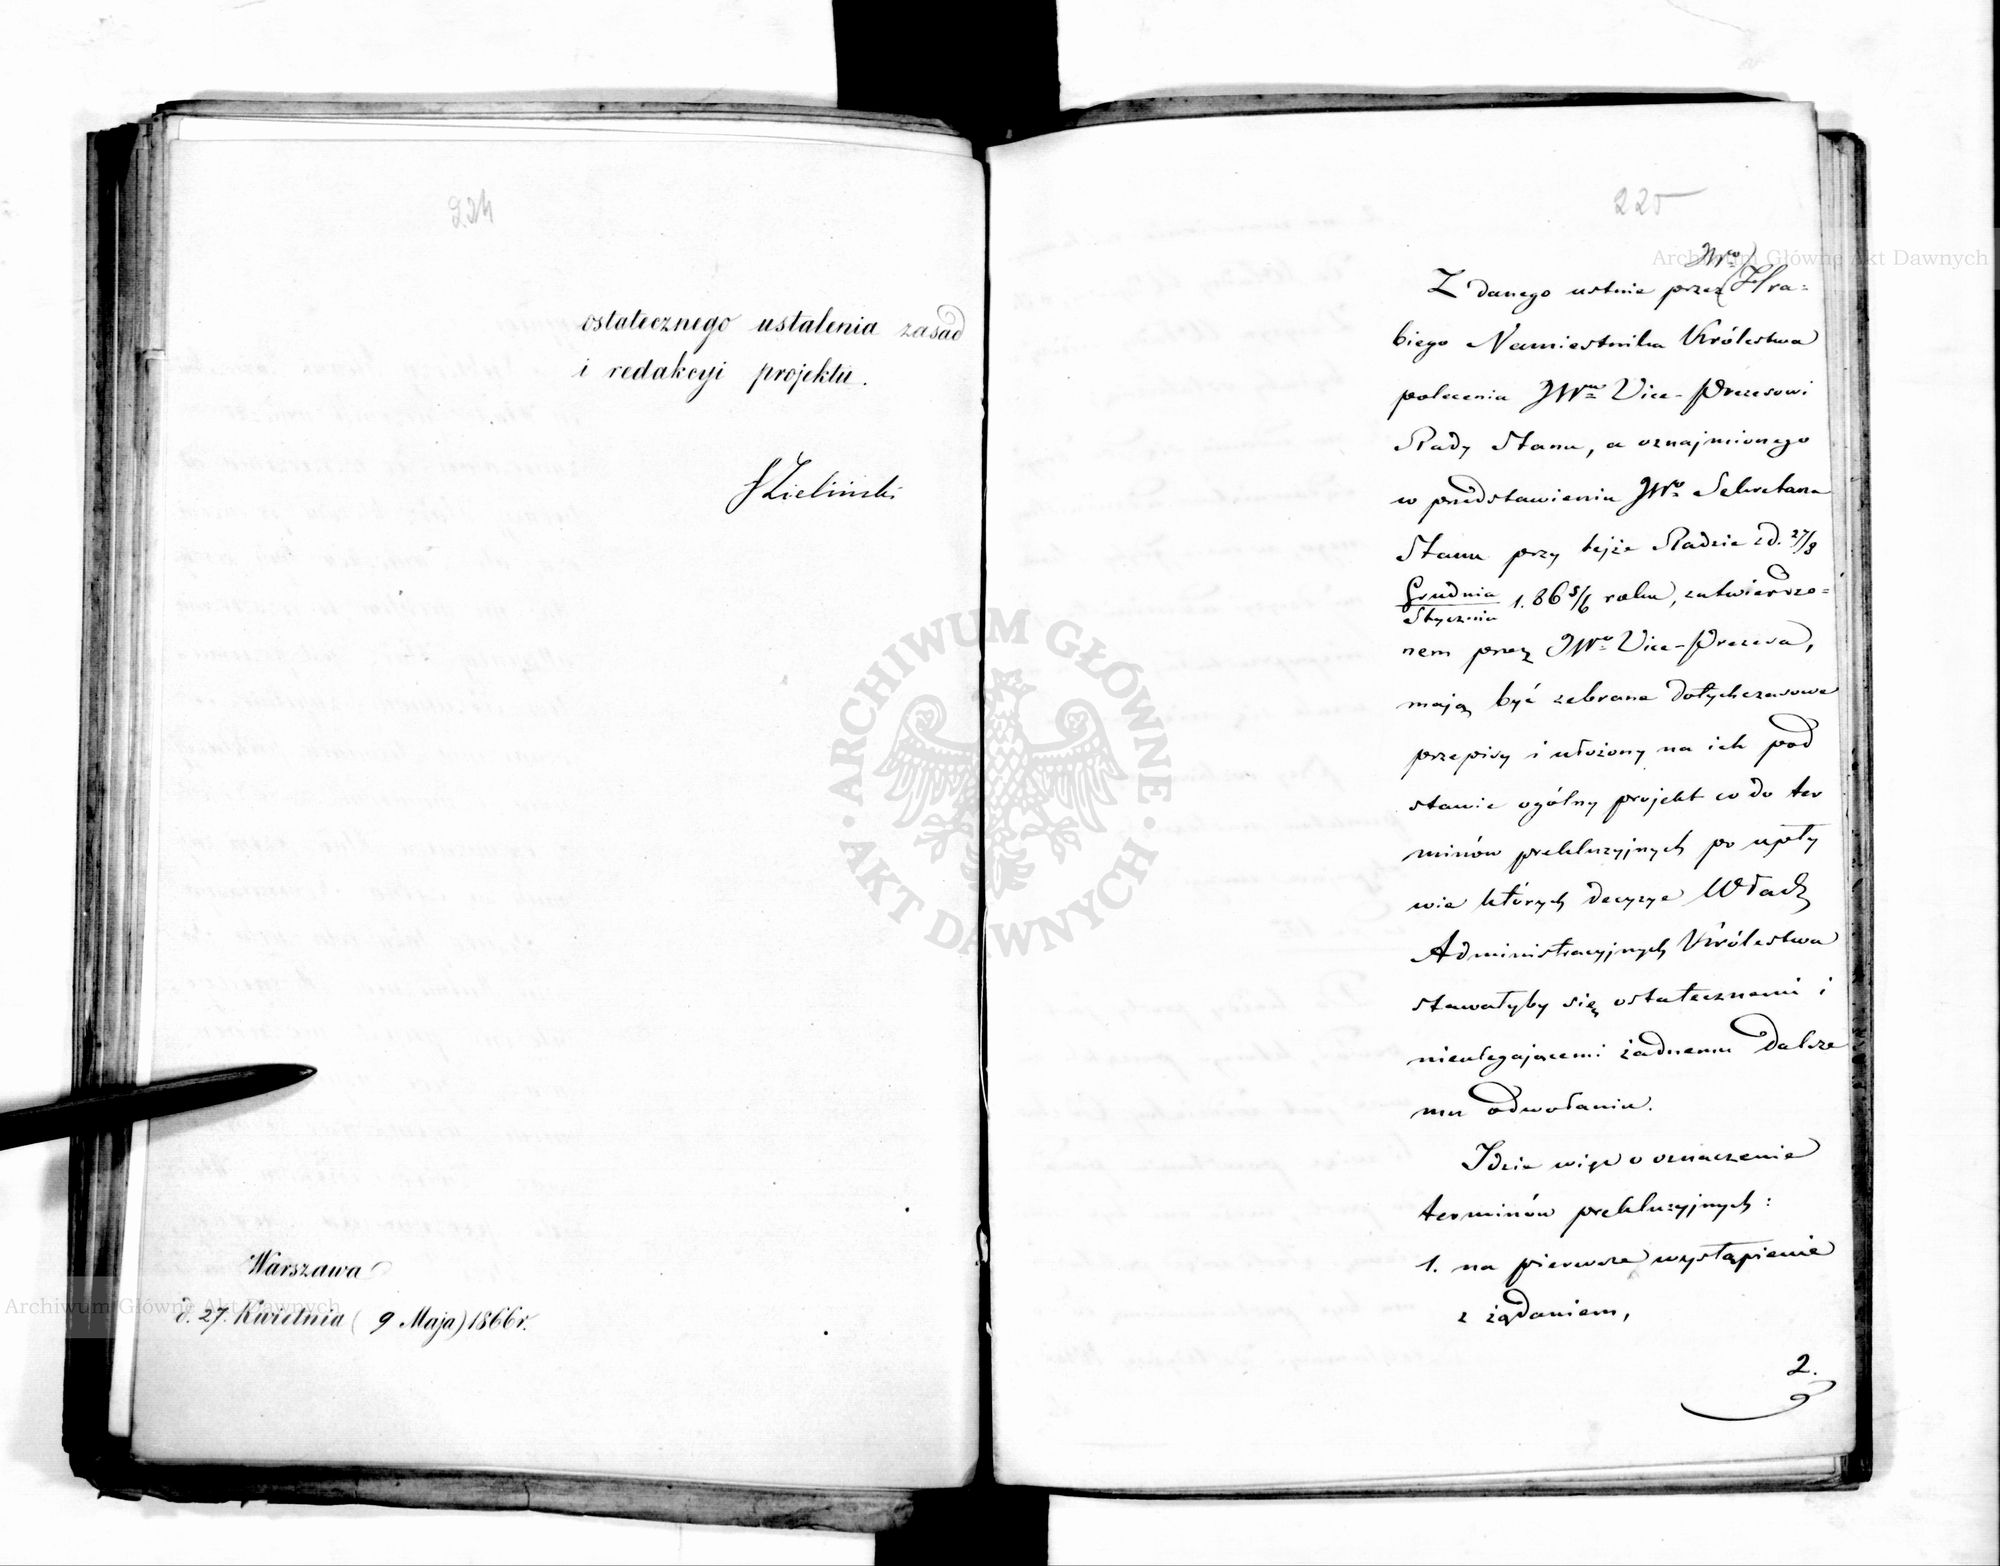 224
ostatecznego ustalenia zasad
i redakcyi projektu.
JZieliński
Warszawa
d. 27. Kwietnia (9 Maja) 1866r.
225
JWo
Z danego ustnie przez Hra=
biego Namiestnika Królestwa
polecenia JWmu Vice-Prezesowi
Rady Stanu, a oznajmionego
w przedstawieniu JWo Sekretarza
Stanu przy tejże Radzie z d. 27/8
Grudnia
Stycznia 1.865/6 roku, zatwierdzo=
nem przez JWo Vice-Prezesa,
mają być zebrane dotychczasowe
przepisy i ułożony na ich pod
stawie ogólny projekt co do ter
minów prekluzyjnych po upły
wie których decyzye Władz
Administracyjnych Królestwa
stawałyby się ostatecznemi i
nieulegającemi żadnemu dalsze
mu odwołaniu.
Idzie więc o oznaczenie
terminów prekluzyjnych:
1. na pierwsze wystąpienie
z żądaniem,
2.
ARCHIWUM GŁÓWNE
AKT DAWNYCH
Archiwum Główne Akt Dawnych
Archiwum Główne Akt Dawnych